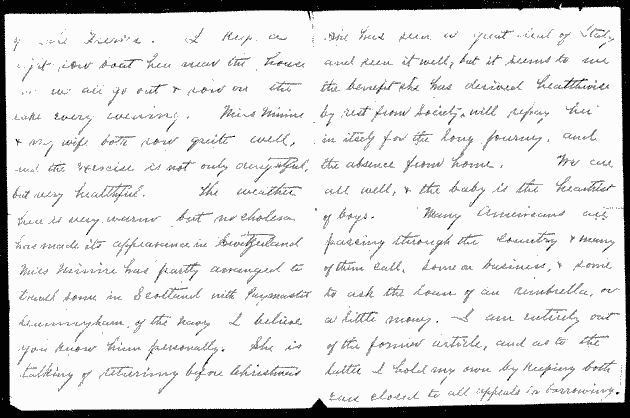 I keep a
row boat here near the house
we all go out & row on the
lake every evening. Miss Minnie
& my wife both row quite well,
and the exercise is not only delightful,
but very healthful. The weather
here is very warm but no cholera
has made its appearance in Switzerland
Miss Minnie has partly arranged to
travel some in Scotland with Paymaster
of the Navy I believe
you know him personally. She is
talking of returning before Christmas
She has seen a great deal of Italy
and seen it well, but it seems to me
the benefit she has derived healthwise
by rest from Society, will repay her
in itself for the long journey, and
the absence from home. We are
all well, & the baby is the heartiest
of boys. Many Americans are
passing through the country & many
of them call, some on business, & some
to ask the loan of an umbrella, or
a little money. I am entirely out
of the former article, and as to the
latter I hold my own by keeping both
ears closed to all appeals in borrowing.